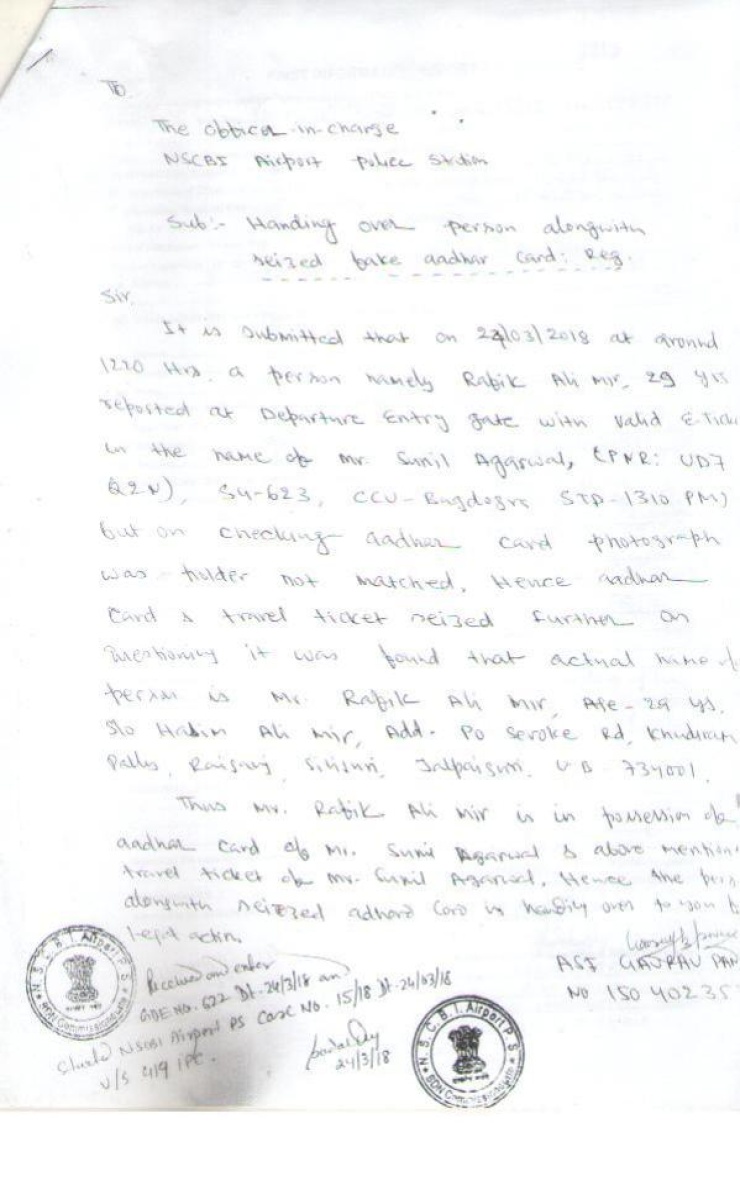 To
The officer-in-charge
NSCBI Airport Police Station
Sub:- Handing over person alongwith
seized fake aadhar card: Reg.
Sir,
It is submitted that on 24/03/2018 at around
1220 Hrs. a person namely Rafik Ali Mir, 29 yrs
reported at Departure Entry gate with valid E-Tick
in the name of Mr. Sunil Agarwal, (PNR: UD7
Q2N), SG-623, CCU-Bagdogra STD-1310 PM)
but on checking aadhar card photograph
was holder not matched. Hence aadhar
card & travel ticket seized further on
questioning it was found that actual name of
person is Mr. Rafik Ali Mir, Age-29 yrs.
S/o Halim Ali Mir, Add- Po Sevoke Rd, Khudiram
Pally, Siliguri, Jalpaiguri, W B 734001.
Thus Mr. Rafik Ali Mir is in possession of
aadhar card of Mr. Sunil Agarwal & above mention
travel ticket of Mr. Sunil Agarwal. Hence the pers
alongwith seizzed adhard Card is handing over to you
legal action.
ASI GAURAV PAN
NO 150 40235
N.S.C.B.I. Airport P.S
BDN Commissionerate
Received and enter
GDE NO. 622 Dt-24/3/18 and
Started NSCBI Airport PS Case No. 15/18 Dt-24/03/18
U/S 419 IPC.
24/3/18
N.S.C.B.I. Airport P.S
BDN Commissionerate